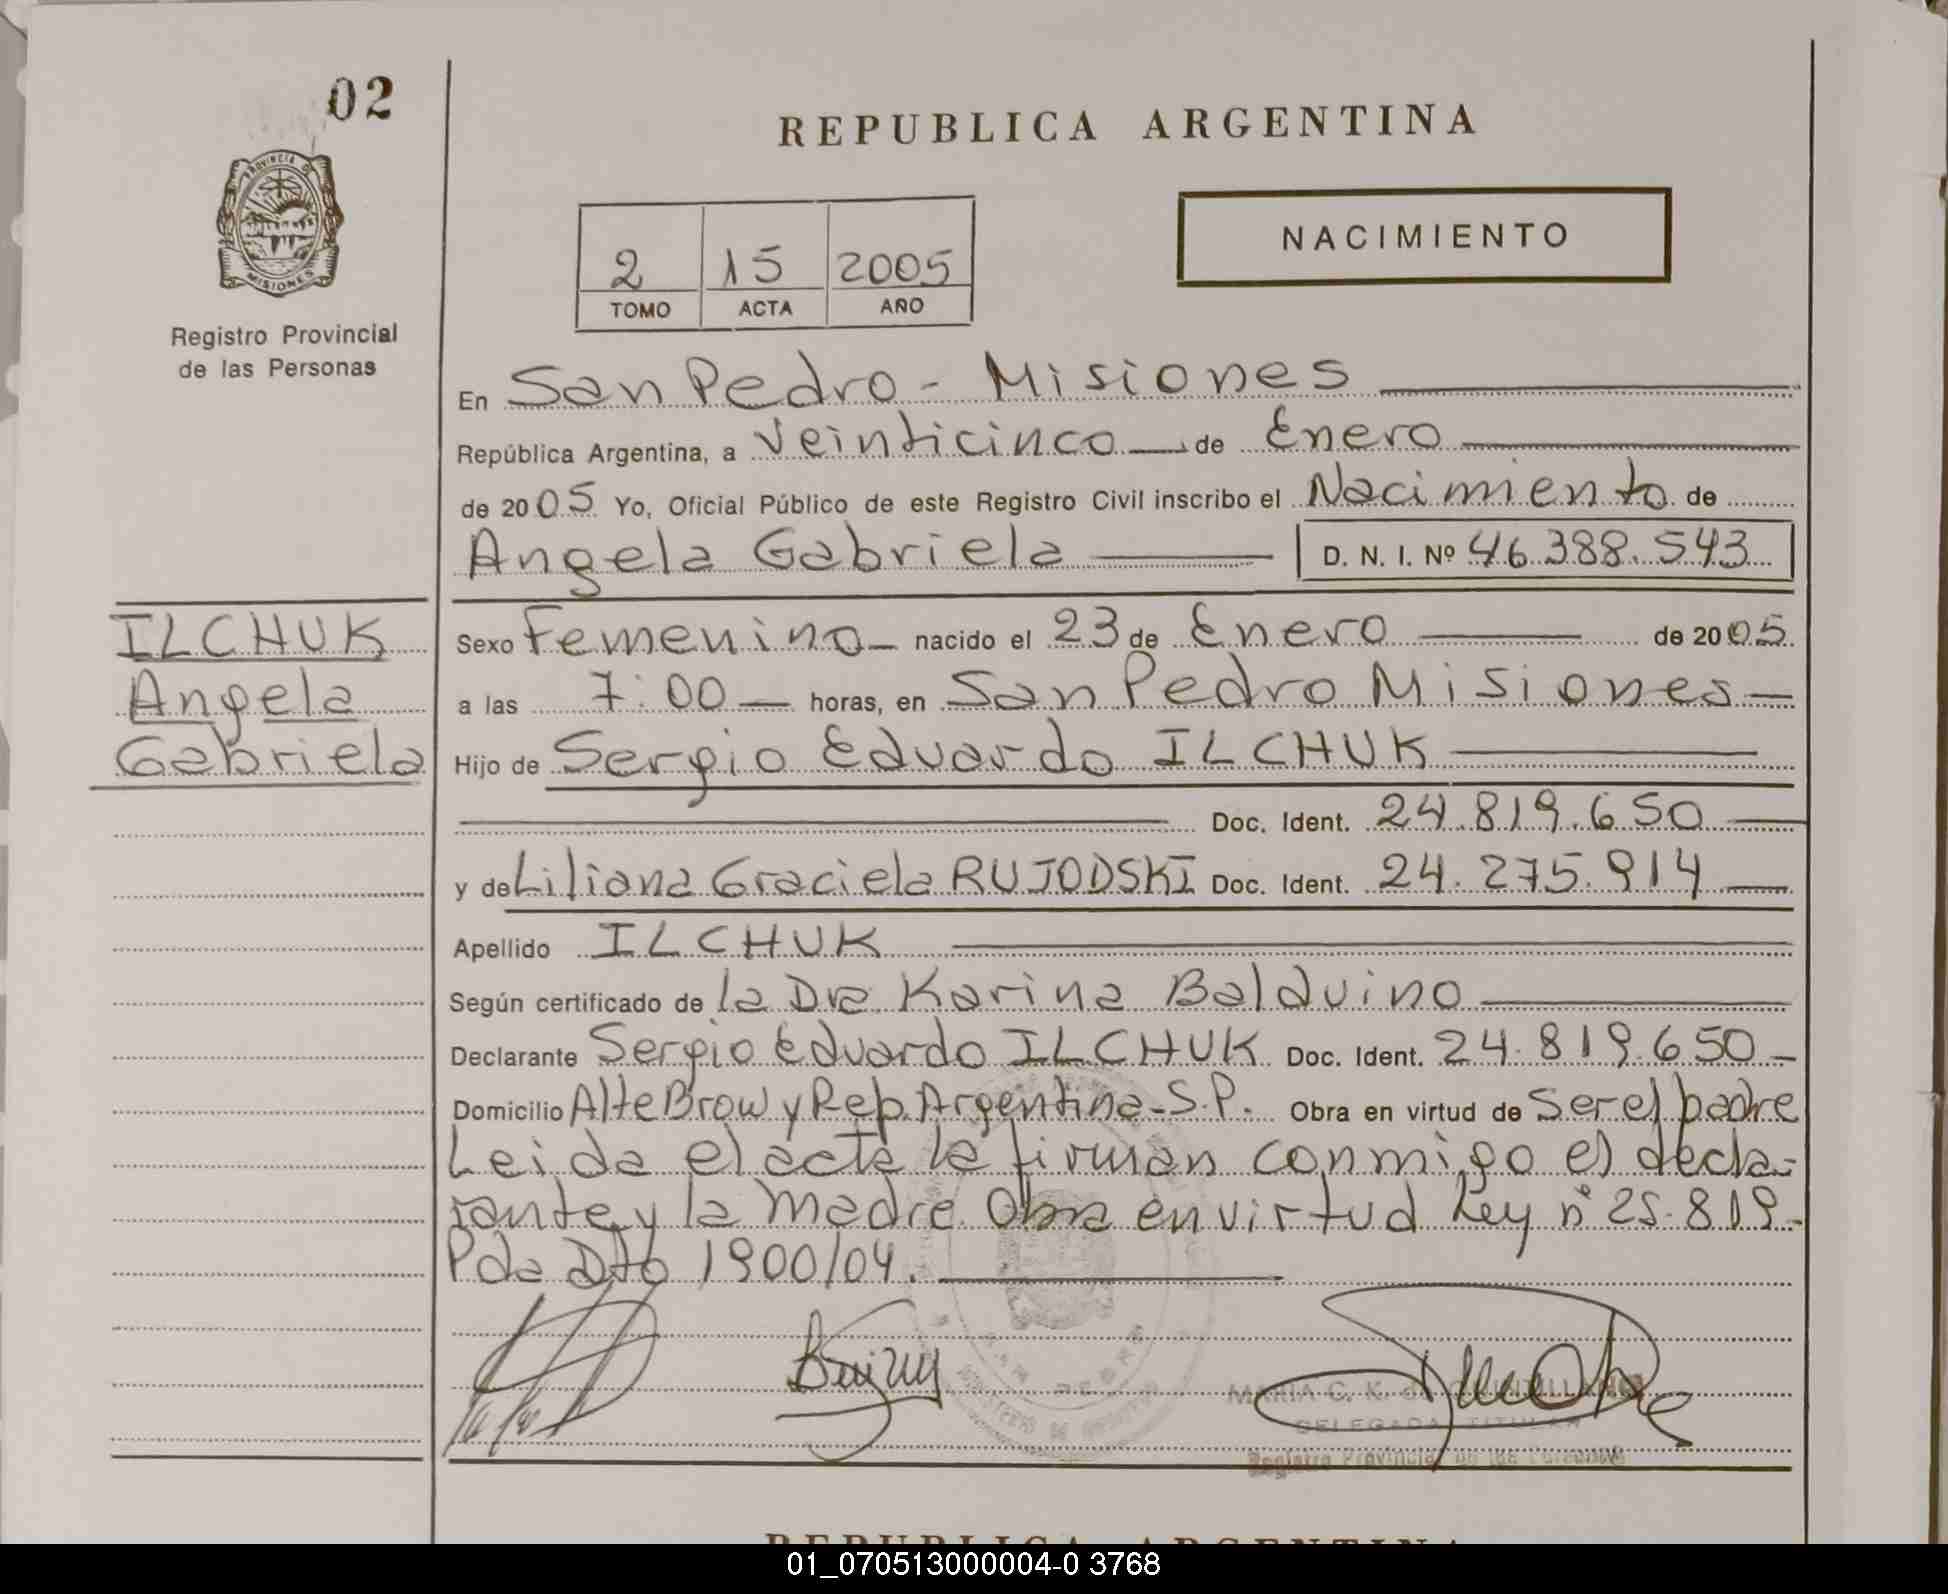 02
REPUBLICA ARGENTINA
PROVINCIA DE
MISIONES
Registro Provincial
de las Personas
2 15 2005
TOMO ACTA AÑO
NACIMIENTO
En San Pedro - Misiones
República Argentina, a Veinticinco de Enero
de 2005 Yo, Oficial Público de este Registro Civil inscribo el Nacimiento de
Angela Gabriela D. N. I. Nº 46.388.543
ILCHUK
Angela
Gabriela
Sexo Femenino nacido el 23 de Enero de 2005
a las 7:00 horas, en San Pedro Misiones
Hijo de Sergio Eduardo ILCHUK
Doc. Ident. 24.819.650
y de Liliana Graciela RUJODSKI Doc. Ident. 24.275.914
Apellido ILCHUK
Según certificado de la Dra Karina Balduino
Declarante Sergio Eduardo ILCHUK Doc. Ident. 24.819.650
Domicilio Alte Brow y Rep. Argentina - S.P. Obra en virtud de Ser el padre
Leida el acta la firman conmigo el decla-
rante y la madre. Obra en virtud Ley nº 25.819
Pda Dto 1900/04.
MARIA C. K. de
DELEGADA TITULAR
Registro Provincial de las Personas
REPUBLICA ARGENTINA
01_070513000004-0 3768